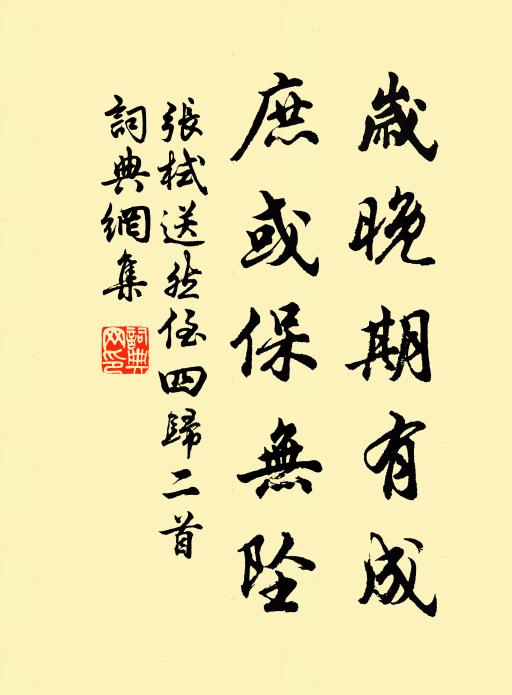 歲晚期有成
庶或保無墜
張栻送然侄西歸二首
詞典網集
詞典網印